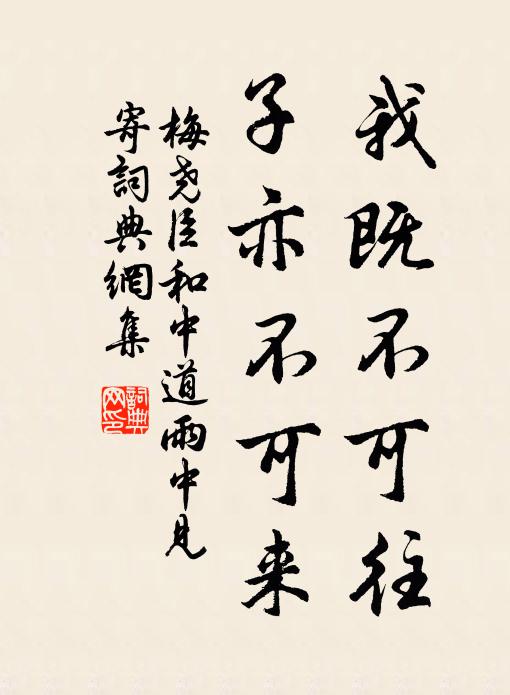 我既不可往
子亦不可来
梅尧臣和中道雨中見
寄詞典網集
詞典
网印